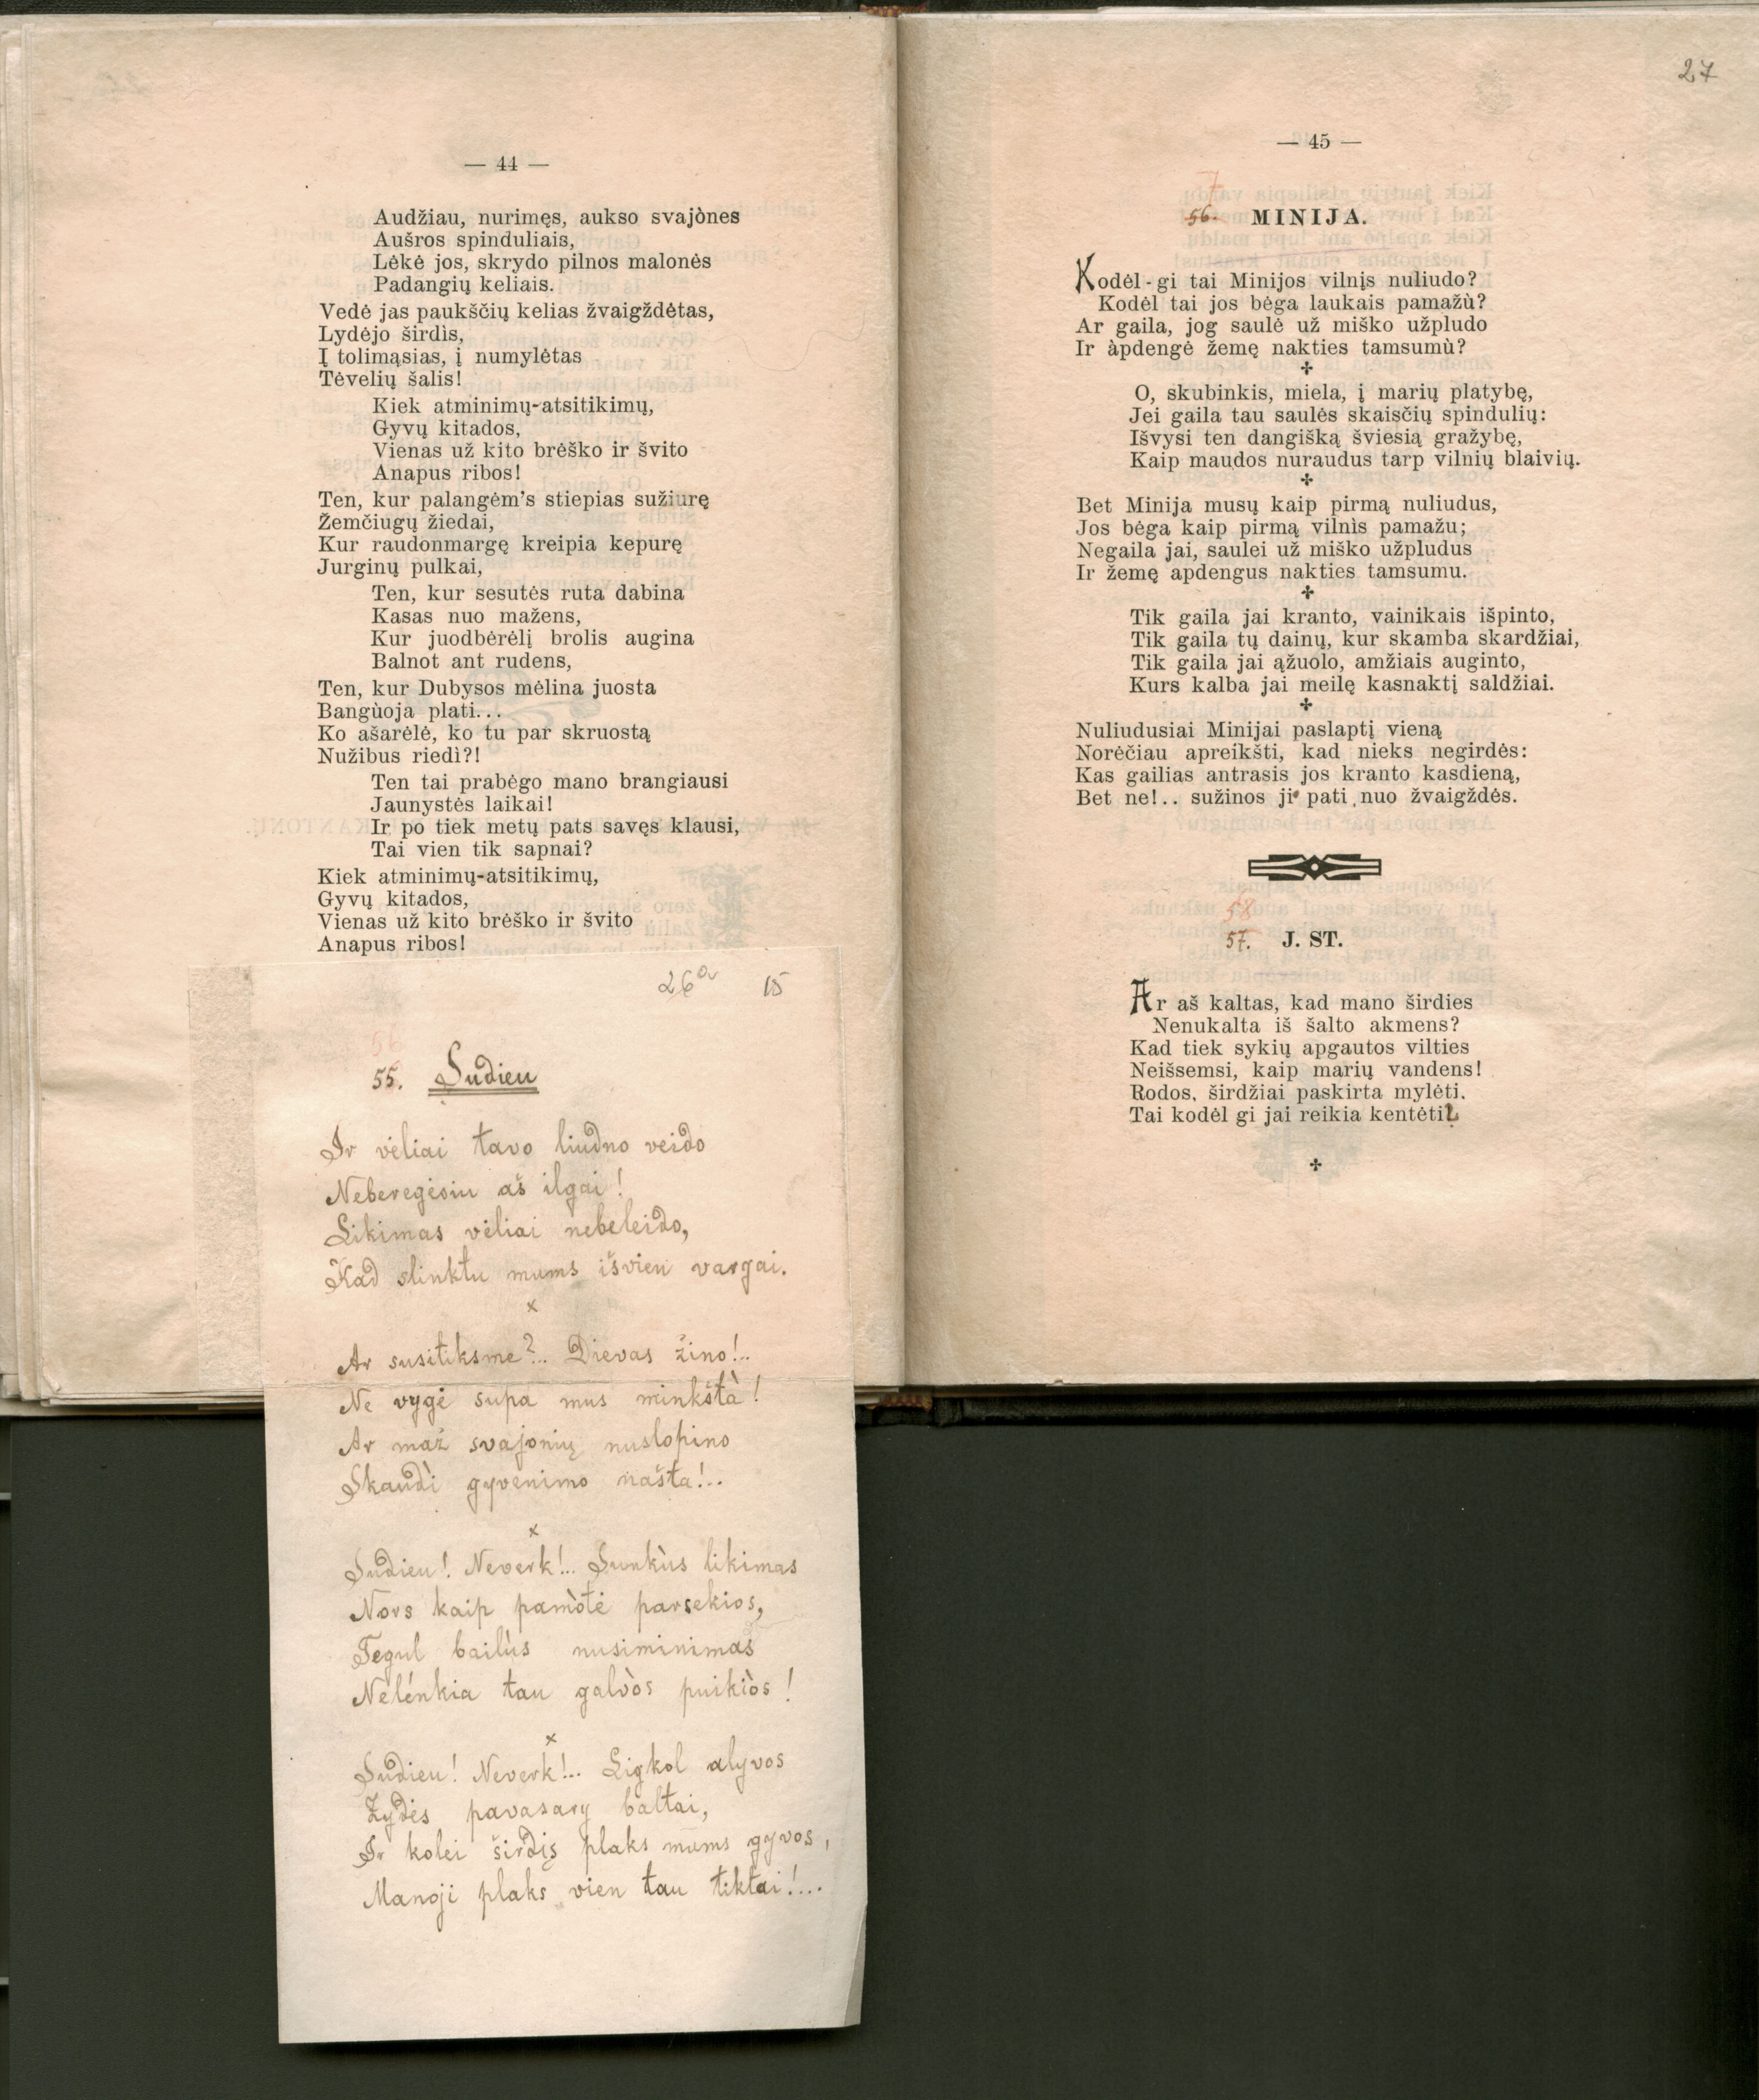 — 44 —
Audžiau, nurimęs, aukso svajònes
Aušros spinduliais,
Lėkė jos, skrydo pilnos malonės
Padangių keliais.
Vedė jas paukščių kelias žvaigždėtas,
Lydėjo širdìs,
Į tolimąsias, į numylėtas
Tėvelių šalis!
Kiek atminimų-atsitikimų,
Gyvų kitados,
Vienas už kito brėško ir švito
Anapus ribos!
Ten, kur palangėm's stiepias sužiurę
Žemčiugų žiedai,
Kur raudonmargę kreipia kepurę
Jurginų pulkai,
Ten, kur sesutės ruta dabina
Kasas nuo mažens,
Kur juodbėrėlį brolis augina
Balnot ant rudens,
Ten, kur Dubysos mėlina juosta
Bangùoja plati...
Ko ašarėlė, ko tu par skruostą
Nužibus riedì?!
Ten tai prabėgo mano brangiausi
Jaunystės laikai!
Ir po tiek metų pats savęs klausi,
Tai vien tik sapnai?
Kiek atminimų-atsitikimų,
Gyvų kitados,
Vienas už kito brėško ir švito
Anapus ribos!
26a 15
56
55. Sudieu
Ir vėliai tavo liudno veido
Neberegėsiu aš ilgai!
Likimas vėliai nebeleido,
Kad slinktu mums išvien vargai.
x
Ar susitiksme?.. Dievas žino!..
Ne vygė supa mus minkštà!
Ar maž svajonių nuslopino
Skaudì gyvenimo našta!..
x
Sudieu! Neverk!.. Sunkùs likimas
Nors kaip pamòtė parsekios,
Tegul bailùs nusiminimas
Nelénkia tau galvòs puikiòs!
x
Sudieu! Neverk!.. Ligkol alyvos
Žydės pavasarą baltai,
Ir kolei širdįs plaks mums gyvos,
Manoji plaks vien tau tiktai!...
27
— 45 —
7
56. MINIJA.
Kodėl-gi tai Minijos vilnįs nuliudo?
Kodėl tai jos bėga laukais pamažù?
Ar gaila, jog saulė už miško užpludo
Ir àpdengė žemę nakties tamsumù?
✢
O, skubinkis, miela, į marių platybę,
Jei gaila tau saulės skaisčių spindulių:
Išvysi ten dangišką šviesią gražybę,
Kaip maudos nuraudus tarp vilnių blaivių.
✢
Bet Minija musų kaip pirmą nuliudus,
Jos bėga kaip pirmą vilnìs pamažu;
Negaila jai, saulei už miško užpludus
Ir žemę apdengus nakties tamsumu.
✢
Tik gaila jai kranto, vainikais išpinto,
Tik gaila tų dainų, kur skamba skardžiai,
Tik gaila jai ąžuolo, amžiais auginto,
Kurs kalba jai meilę kasnaktį saldžiai.
✢
Nuliudusiai Minijai paslaptį vieną
Norėčiau apreikšti, kad nieks negirdės:
Kas gailias antrasis jos kranto kasdieną,
Bet ne!.. sužinos ji pati nuo žvaigždės.
58
57. J. ST.
Ar aš kaltas, kad mano širdies
Nenukalta iš šalto akmens?
Kad tiek sykių apgautos vilties
Neišsemsi, kaip marių vandens!
Rodos, širdžiai paskirta mylėti.
Tai kodėl gi jai reikia kentėti?
✢